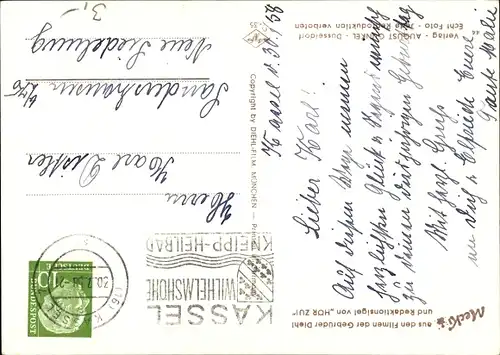 3,-
Kassel d. 30./7. 58
Lieber Karl!
Auf diesem Wege meinen
herzlichsten Glück u. Segenswunsch
zu deinem diesjährigen Geburtstag
Mit herzl. Gruß
u. Elfriede Eure
Tante
Herrn
Karl Distler
Sandershausen
Neue Siedlung
Verlag - AUGUST GUNKEL - Düsseldorf
Echt Foto - Jede Reproduktion verboten
Copyright by DIEHL-FILM, MÜNCHEN
55
Mecki
aus den Filmen der Gebrüder Diehl
und Redaktionsigel von "HÖR ZU!"
KASSEL
WILHELMSHÖHE
KNEIPP-HEILBAD
(16) KASSEL
10
DEUTSCHE
BUNDESPOST